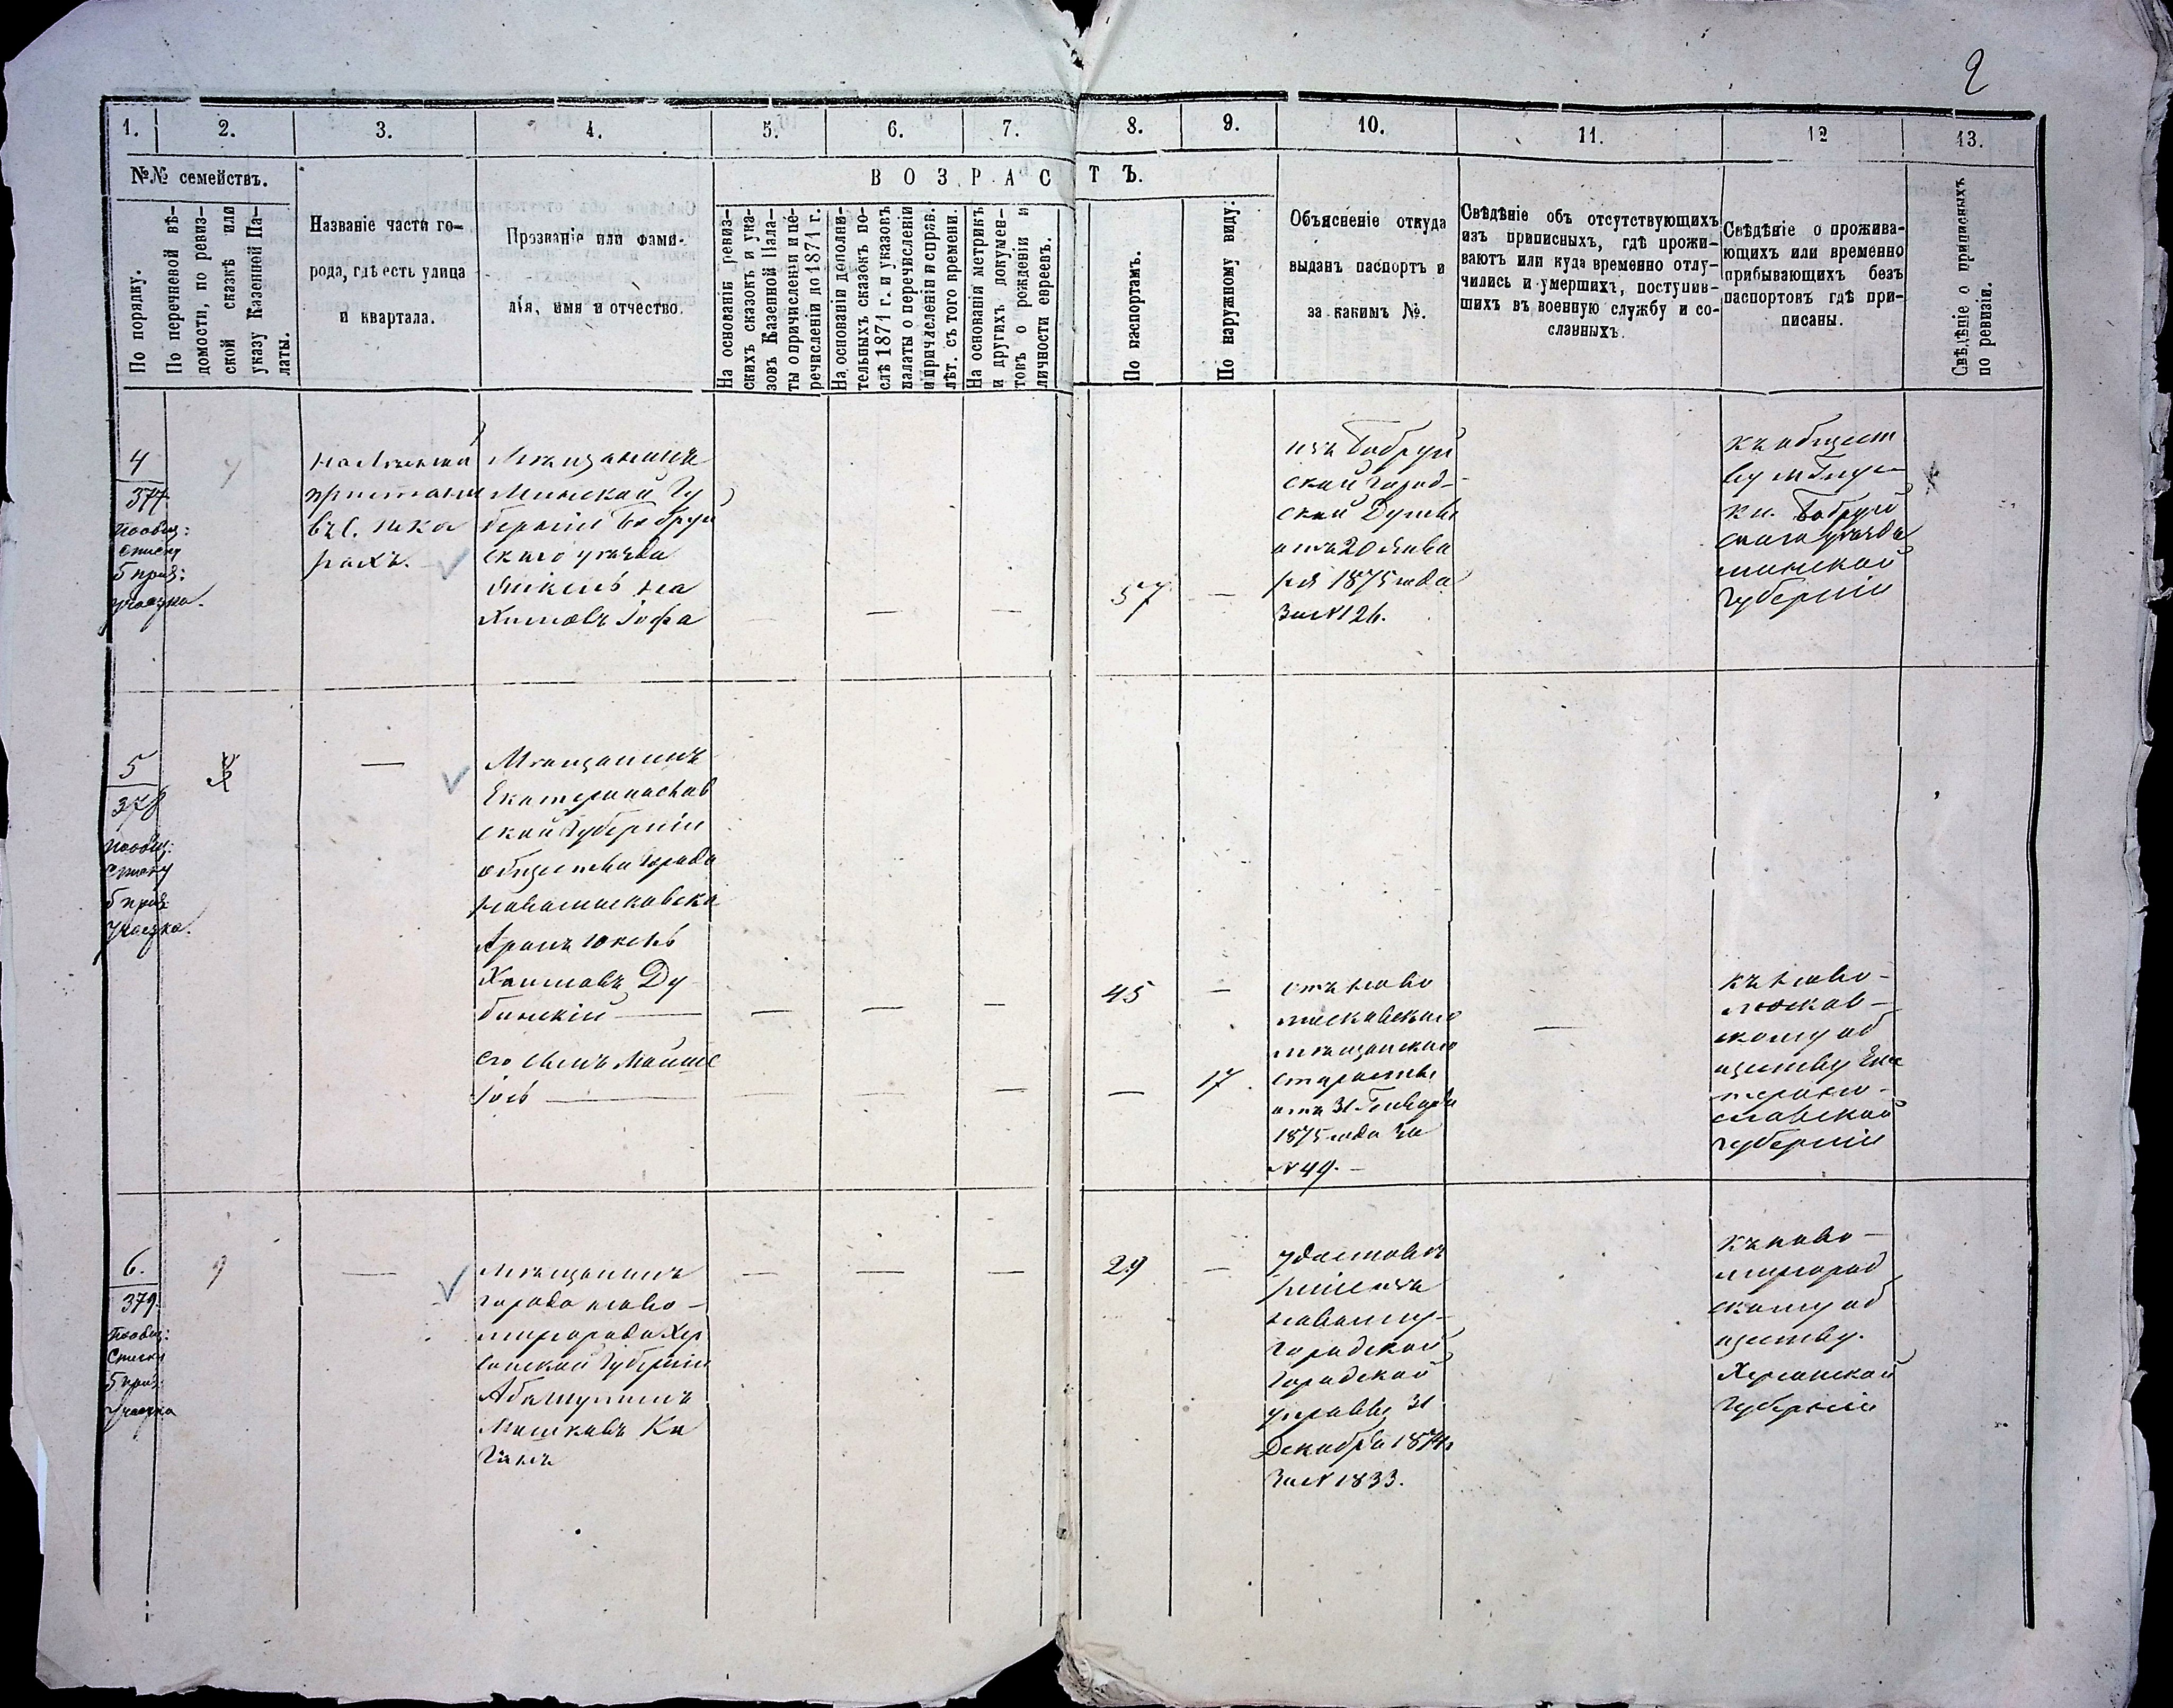 2
1.
2.
3.
4.
5.
6.
7.
8.
9.
10.
11.
12
13.
№№ семействъ.
ВОЗРАСТЪ.
По порядку.
По перечневой вѣ-
домости, по ревиз-
ской сказкѣ или
указу Казенной Па-
латы.
Названіе части го-
рода, гдѣ есть улица
и квартала.
Прозваніе или фами-
лія, имя и отчество.
На основаніи ревиз-
скихъ сказокъ и ука-
зовъ Казенной Пала-
ты о причисленіи и пе-
речисленіи до 1871 г.
На основаніи дополни-
тельныхъ сказокъ по-
слѣ 1871 г. и указовъ
палаты о перечисленіи
и причисленіи и справ.
лѣт. съ того времени.
На основаніи метрикъ
и другихъ докумен-
товъ о рожденіи и
личности евреевъ.
По паспортамъ.
По наружному виду.
Объясненіе откуда
выданъ паспортъ и
за какимъ №.
Свѣдѣніе объ отсутствующихъ
изъ приписныхъ, гдѣ прожи-
ваютъ или куда временно отлу-
чились и умершихъ, поступив-
шихъ въ военную службу и со-
сланныхъ.
Свѣдѣніе о прожива-
ющихъ или временно
прибывающихъ безъ
паспортовъ гдѣ при-
писаны.
Свѣдѣніе о приписныхъ
по ревизіи.
4
377
Пообщ:
списку
5 приз:
участка.
пристани
въ с.
Мѣщанинъ
Минской Гу
берніи Бобруй
скаго уѣзда
Хаимовъ Іофа
—
—
—
57
—
изъ Бобруй
ской Город-
ской Думы
отъ 20 Янва
ря 1875 года
За № 126.
къ общест
ву м. Глус
ки. Бобруй
скаго уѣзда
минской
губерніи
5
378
пообщ:
списку
5 приз:
Участка.
—
Мѣщанинъ
Екатеринослав
ской Губерніи
общества города
Новомосковска
Хаимовъ Ду
бинскій —
его сынъ Мойше
Іось —
—
—
—
—
—
—
45
—
—
17.
отъ Ново
московскаго
мѣщанскаго
старосты
отъ 31 Генваря
1875 года за
№ 49. —
—
къ Ново-
москов-
скому об
ществу Ека
терино-
славской
губерніи
6.
379.
Пообщ:
Списку
5 приз:
Участка
9
—
Мѣщанинъ
города Ново-
миргорода Хер
сонской Губерніи
Мошковъ Ка
ганъ
—
—
—
29
—
Новомир-
городской
Городской
управы 31
Декабря 1874
За № 1833.
Къ ново-
миргород
скому об
ществу.
Херсонской
Губерніи